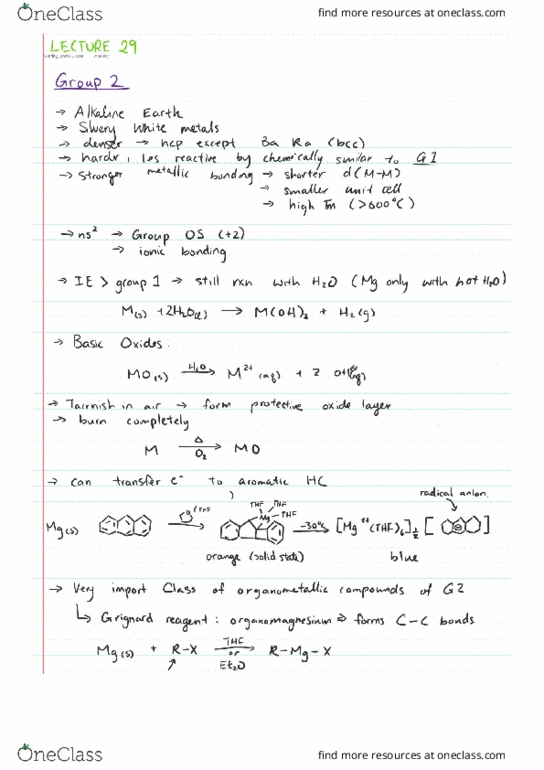 OneClass find more resources at oneclass.com
LECTURE 29
Group 2
→ Alkaline Earth
→ Silvery White metals
→ denser → hcp except Ba Ra (bcc)
→ harder, les reactive by chemically similar to G1
→ Stronger metallic bonding → shorter d(M-M)
→ smaller unit cell
→ high Tm (>600°C)
→ ns² → Group OS (+2)
→ ionic bonding
→ IE > group 1 → still rxn with H₂O (Mg only with hot H₂O)
M(s) + 2H₂O(l) → M(OH)₂ + H₂(g)
→ Basic Oxides:
MO(s) H₂O → M²⁺(aq) + 2 OH⁻(aq)
→ Tarnish in air → form protective oxide layer
→ burn completely
M Δ O₂ → MO
→ can transfer e⁻ to aromatic HC
radical anion.
THF THF
Mg(s) (THF Mg THF -30°C [Mg²⁺(THF)₆]½ [ ]
orange (solid state) blue
→ Very import Class of organometallic compounds of G2
↳ Grignard reagent: organomagnesium ⇒ forms C-C bonds
Mg(s) + R-X THF or Et₂O → R-Mg-X
OneClass find more resources at oneclass.com